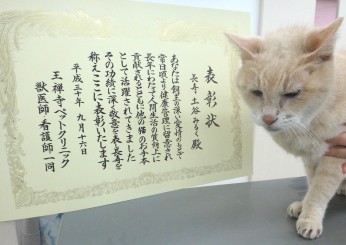 表彰状
長寿 土谷みるく殿
あなたは飼主の深い愛情のもとで
常日頃より健康管理に留意され
長年にわたって人間生活の質向上に
貢献されるとともに他の猫のお手本
として活躍されてきました
その功績に深く敬意を表し長寿を
称えここに表彰いたします
平成三十年 九月十六日
王禅寺ペットクリニック
獣医師 看護師一同